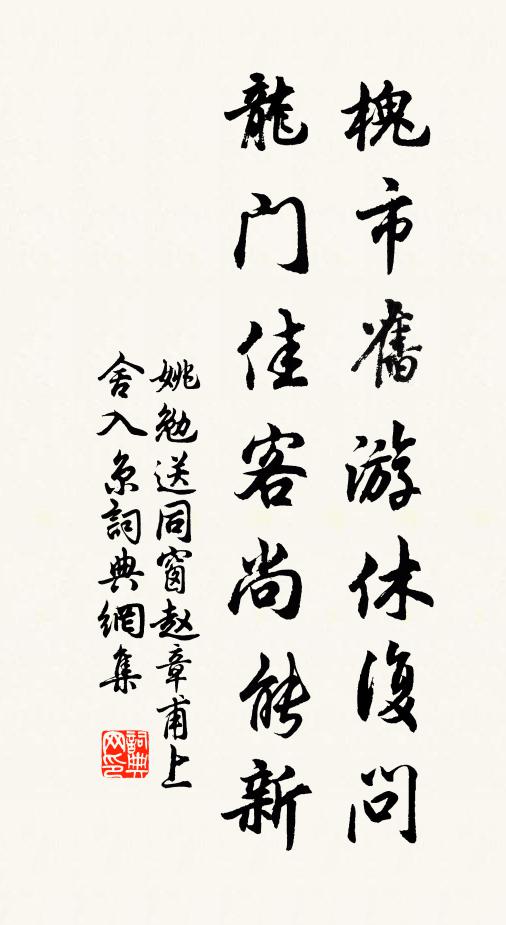 槐市舊游休復問
龍门佳客尚能新
姚勉送同窗赵章甫上
舍入京詞典網集
詞典网印